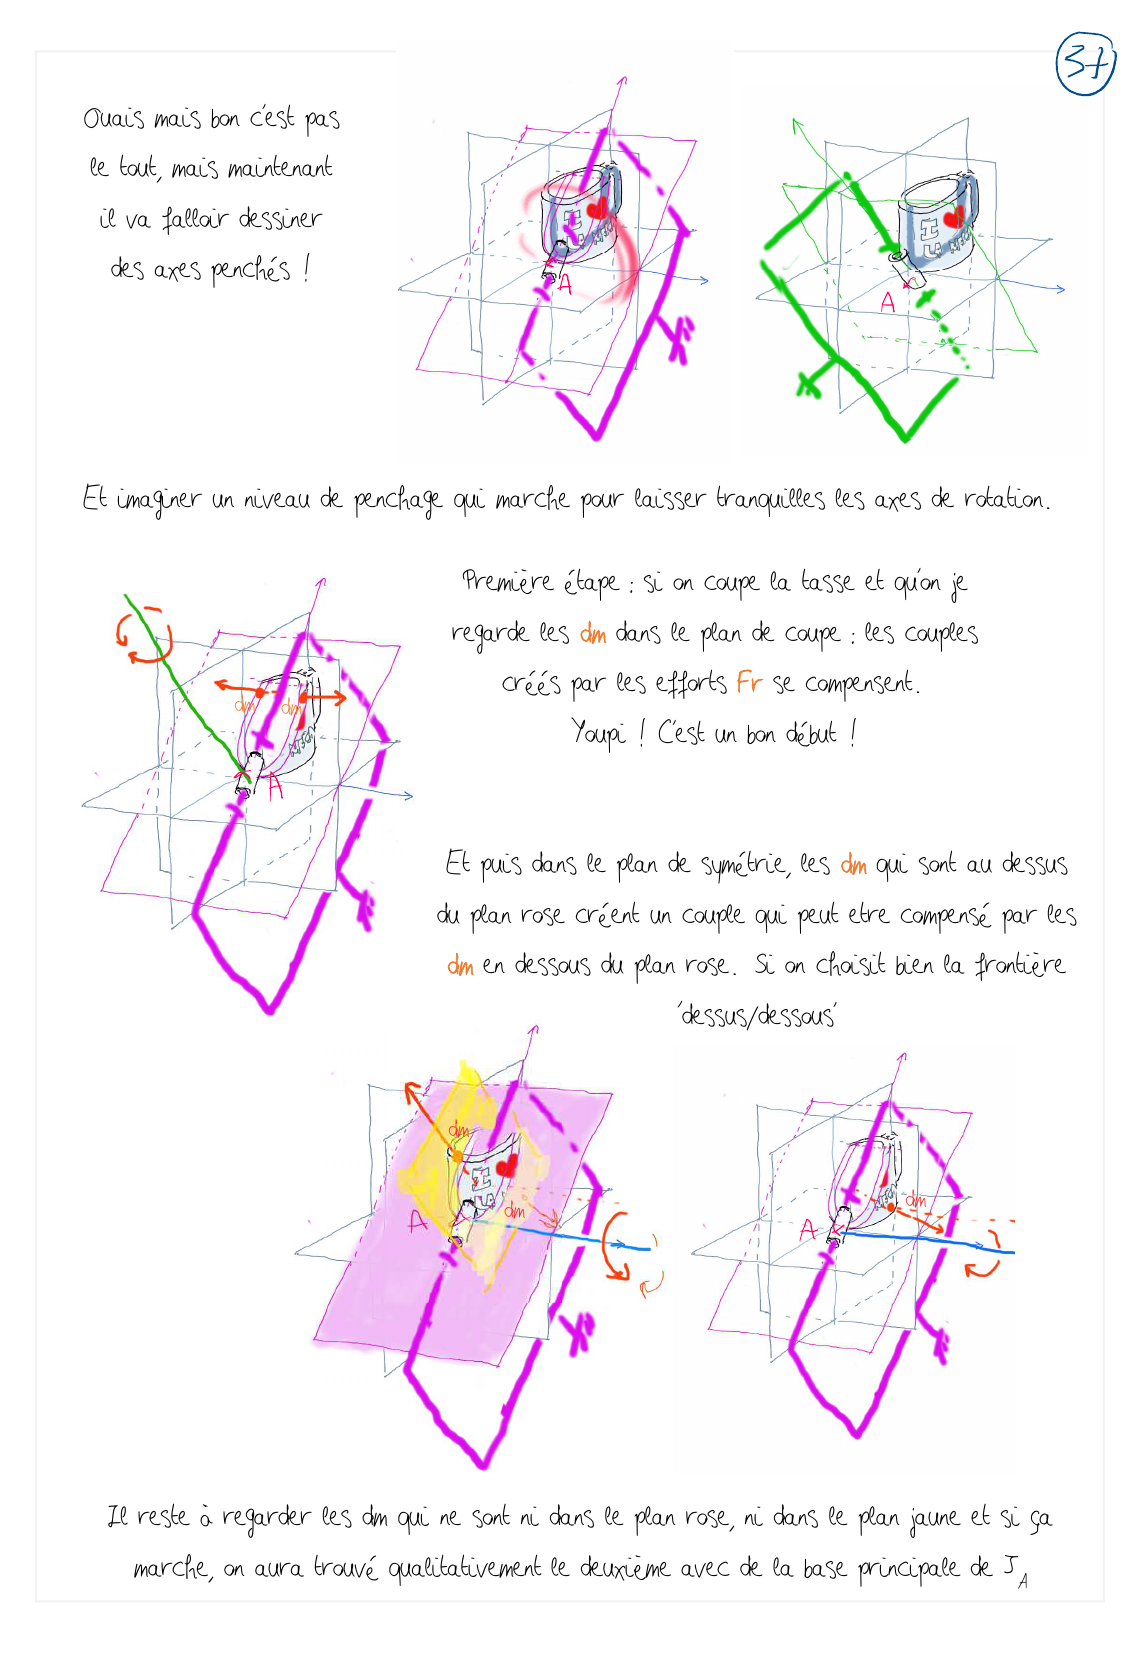 37
Ouais mais bon c'est pas
le tout, mais maintenant
il va falloir dessiner
des axes penchés !
A
A
Et imaginer un niveau de penchage qui marche pour laisser tranquilles les axes de rotation.
Première étape : si on coupe la tasse et qu'on je
regarde les dm dans le plan de coupe : les couples
créés par les efforts Fr se compensent.
Youpi ! C'est un bon début !
dm dm
A
Et puis dans le plan de symétrie, les dm qui sont au dessus
du plan rose créent un couple qui peut etre compensé par les
dm en dessous du plan rose. Si on choisit bien la frontière
'dessus/dessous'
dm
I
dm
A
dm
A
Il reste à regarder les dm qui ne sont ni dans le plan rose, ni dans le plan jaune et si ça
marche, on aura trouvé qualitativement le deuxième avec de la base principale de J
A